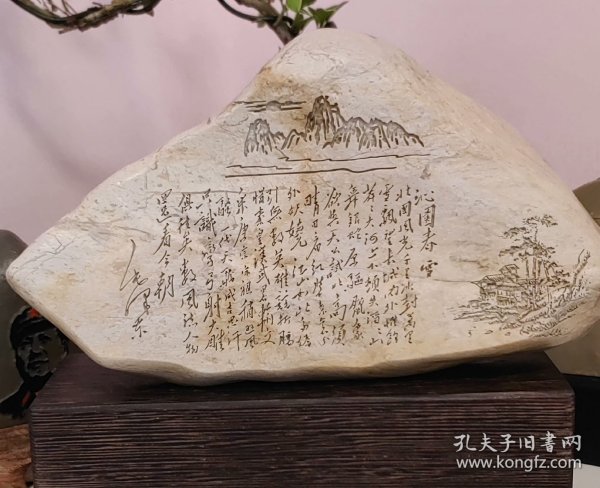 沁園春 雪
北国风光千里冰封万里
雪飘望长城内外惟馀
莽大河上下顿失滔滔山
舞银蛇原驱腊象
欲与天公试比高须
晴日看红装素裹分
外妖娆 江山如此多娇
引无数英雄竞折腰
惜秦皇汉武略输文
采唐宗宋祖稍逊风
骚一代天骄成吉思汗
只識弯弓射大雕
俱往矣数风流人物
還看今朝
毛泽东
孔夫子旧书网
www.kongfz.com